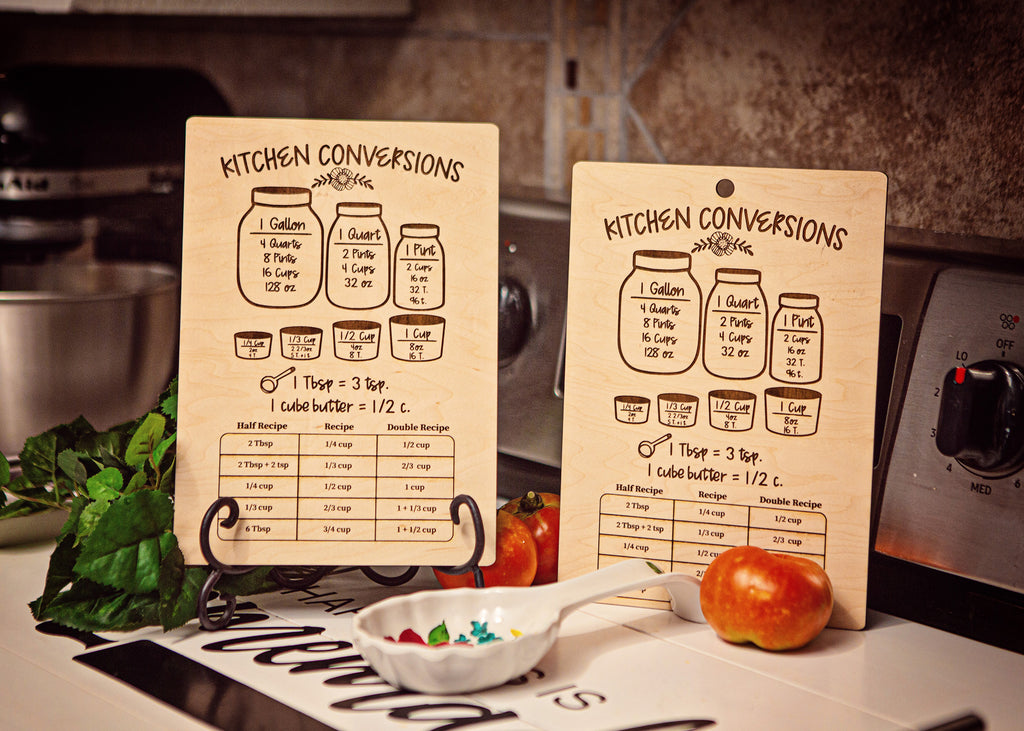 KITCHEN CONVERSIONS
1 Gallon
4 Quarts
8 Pints
16 Cups
128 oz
1 Quart
2 Pints
4 Cups
32 oz
1 Pint
2 Cups
16 oz
32 T.
96 t.
1/4 Cup
2oz
4 T.
1/3 Cup
2 2/3oz
5 T. + 1 t.
1/2 Cup
4oz
8 T.
1 Cup
8oz
16 T.
1 Tbsp = 3 tsp.
1 cube butter = 1/2 c.
Half Recipe Recipe Double Recipe
2 Tbsp 1/4 cup 1/2 cup
2 Tbsp + 2 tsp 1/3 cup 2/3 cup
1/4 cup 1/2 cup 1 cup
1/3 cup 2/3 cup 1 + 1/3 cup
6 Tbsp 3/4 cup 1 + 1/2 cup
KITCHEN CONVERSIONS
1 Gallon
4 Quarts
8 Pints
16 Cups
128 oz
1 Quart
2 Pints
4 Cups
32 oz
1 Pint
2 Cups
16 oz
32 T.
96 t.
1/4 Cup
2oz
4 T.
1/3 Cup
2 2/3oz
5 T. + 1 t.
1/2 Cup
4oz
8 T.
1 Cup
8oz
16 T.
1 Tbsp = 3 tsp.
1 cube butter = 1/2 c.
Half Recipe Recipe Double Recipe
2 Tbsp 1/4 cup 1/2 cup
2 Tbsp + 2 tsp 1/3 cup 2/3 cup
1/4 cup 1/2
OFF
LO
2
3
4
MED
6
IS